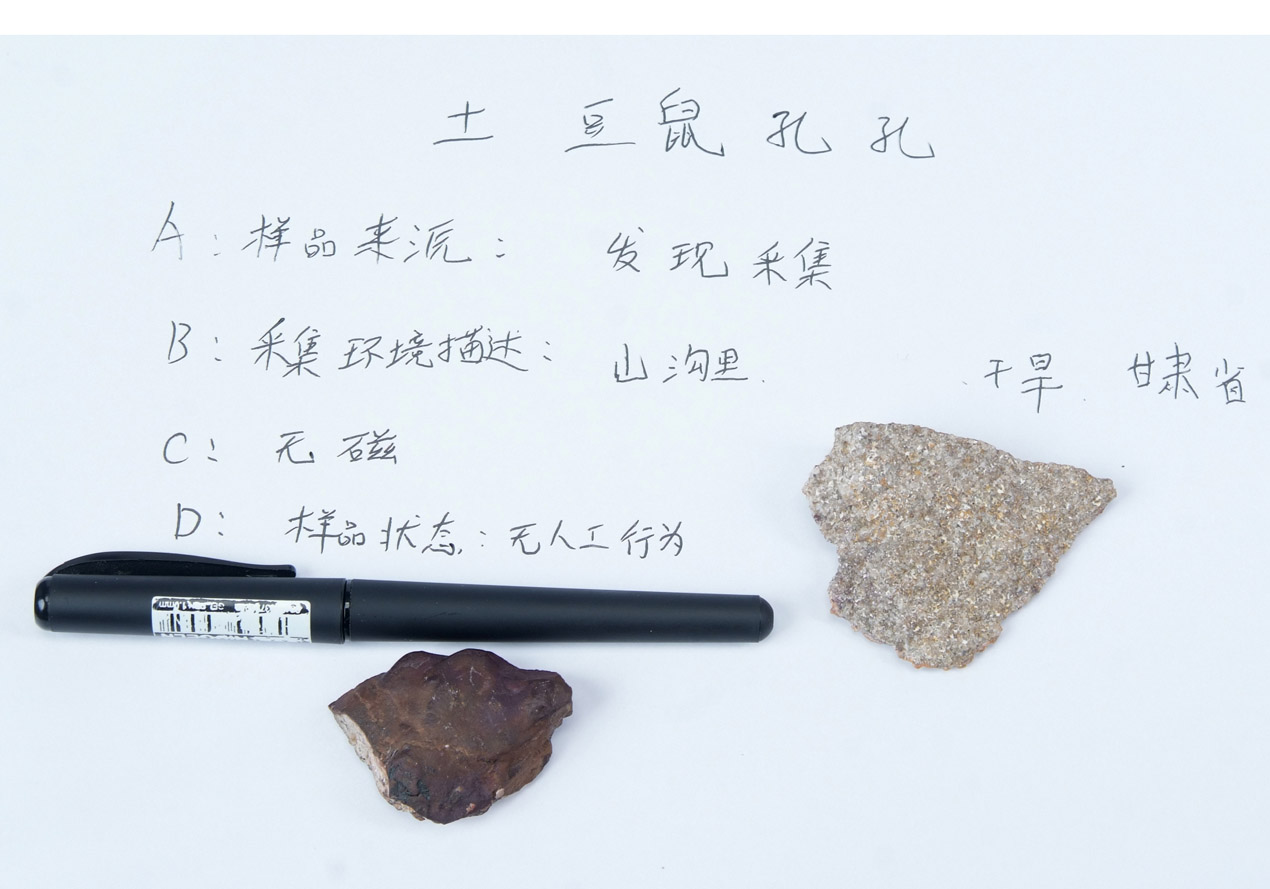 土豆鼠孔孔
A：样品来源： 发现采集
B：采集环境描述： 山沟里. 干旱. 甘肃省
C： 无磁
D： 样品状态：无人工行为